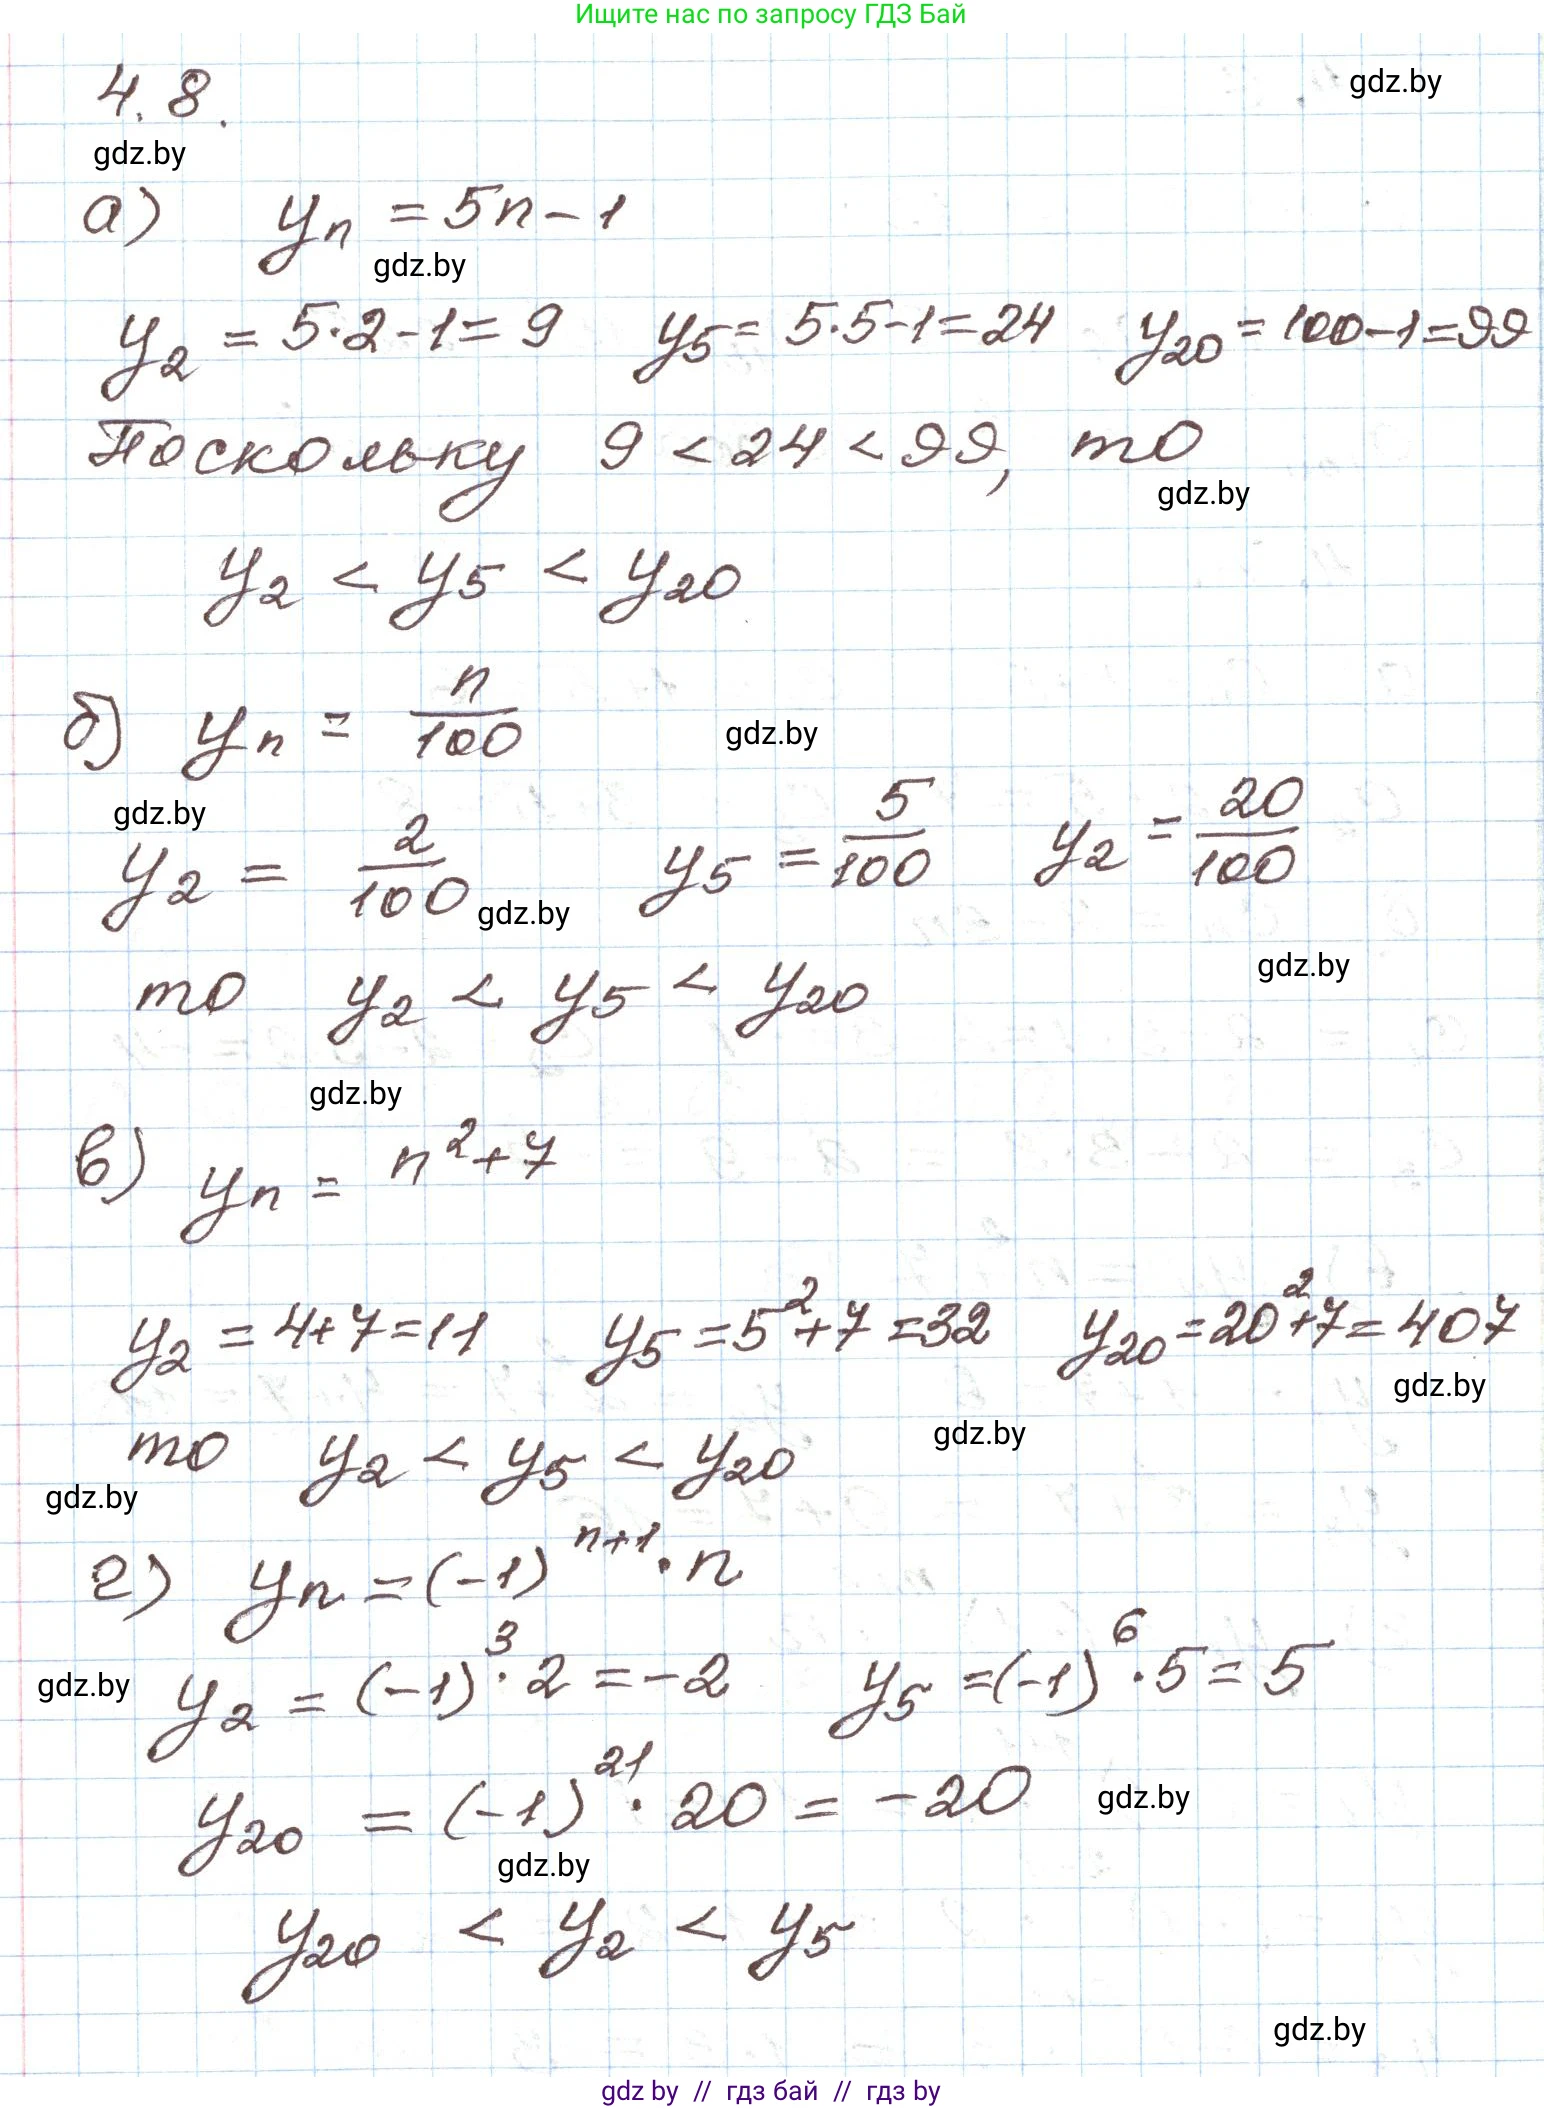 Ищите нас по запросу ГДЗ Бай
4.8.
gdz.by
gdz.by
а) yₙ = 5n - 1
gdz.by
y₂ = 5·2 - 1 = 9 y₅ = 5·5 - 1 = 24 y₂₀ = 100 - 1 = 99
Поскольку 9 < 24 < 99, то
gdz.by
y₂ < y₅ < y₂₀
б) yₙ = n/100
gdz.by
gdz.by
y₂ = 2/100 y₅ = 5/100 y₂ = 20/100
gdz.by
gdz.by
то y₂ < y₅ < y₂₀
gdz.by
в) yₙ = n² + 7
y₂ = 4 + 7 = 11 y₅ = 5² + 7 = 32 y₂₀ = 20² + 7 = 407
gdz.by
gdz.by
то y₂ < y₅ < y₂₀
gdz.by
г) yₙ = (-1)ⁿ⁺¹ · n
y₂ = (-1)³ · 2 = -2 y₅ = (-1)⁶ · 5 = 5
gdz.by
y₂₀ = (-1)²¹ · 20 = -20
gdz.by
gdz.by
y₂₀ < y₂ < y₅
gdz.by
gdz by // гдз бай // гдз by